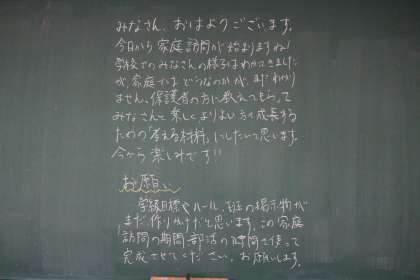 みなさん、おはようございます。
今日から家庭訪問が始まりますね!
学校でのみなさんの様子はわかってきました
が、家庭ではどうなのかが、まだわかり
ません。保護者の方に教えてもらって
みなさんと楽しく、よりよい方で成長する
ための「考える材料」にしたいと思います。
今から楽しみです!!
お願い
学級目標やルール、班の掲示物が
まだ、作りかけだと思います。この家庭
訪問の期間、部活の時間を使って
完成させてください。お願いします。